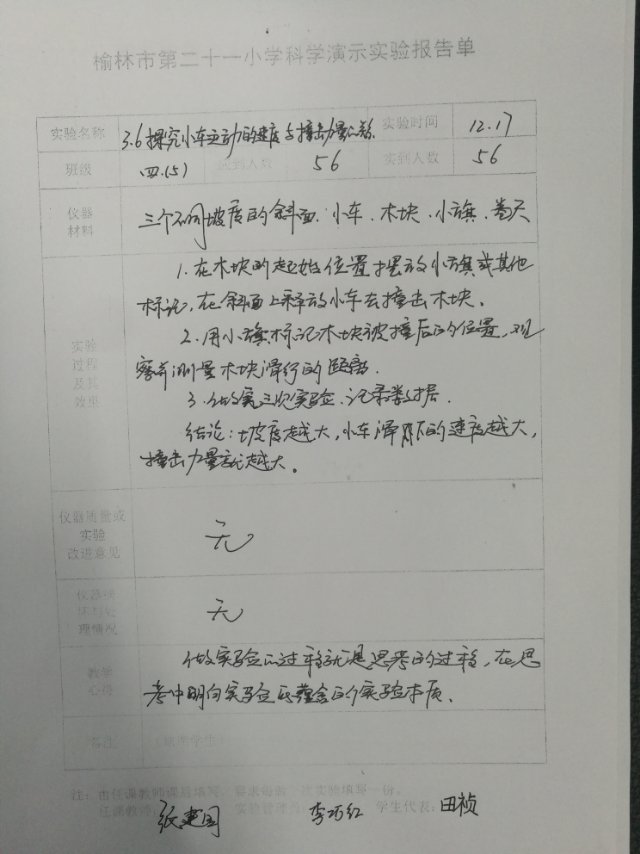 榆林市第二十一小学科学演示实验报告单
实验名称 3.6探究小车运动的速度与撞击力量的关系 实验时间 12.17
班级 四.(5) 应到人数 56 实到人数 56
仪器
材料
三个不同坡度的斜面、小车、木块、小旗、卷尺
实验
过程
及其
效果
1.在木块的起始位置摆放小旗或其他
标记,在斜面上释放小车去撞击木块。
2.用小旗标记木块被撞后的位置,观
察并测量木块滑行的距离。
3.做完三次实验,记录数据。
结论:坡度越大,小车滑下的速度越大,
撞击力量就越大。
仪器质量或
实验
改进意见
无
理情况
无
教学
心得
做实验的过程就是思考的过程,在思
考中明白实验所蕴含的实验本质。
备注
注:由任课教师课后填写,要求每做一次实验填写一份。
任课教师: 张建国 实验管理员: 李巧红 学生代表:田祯